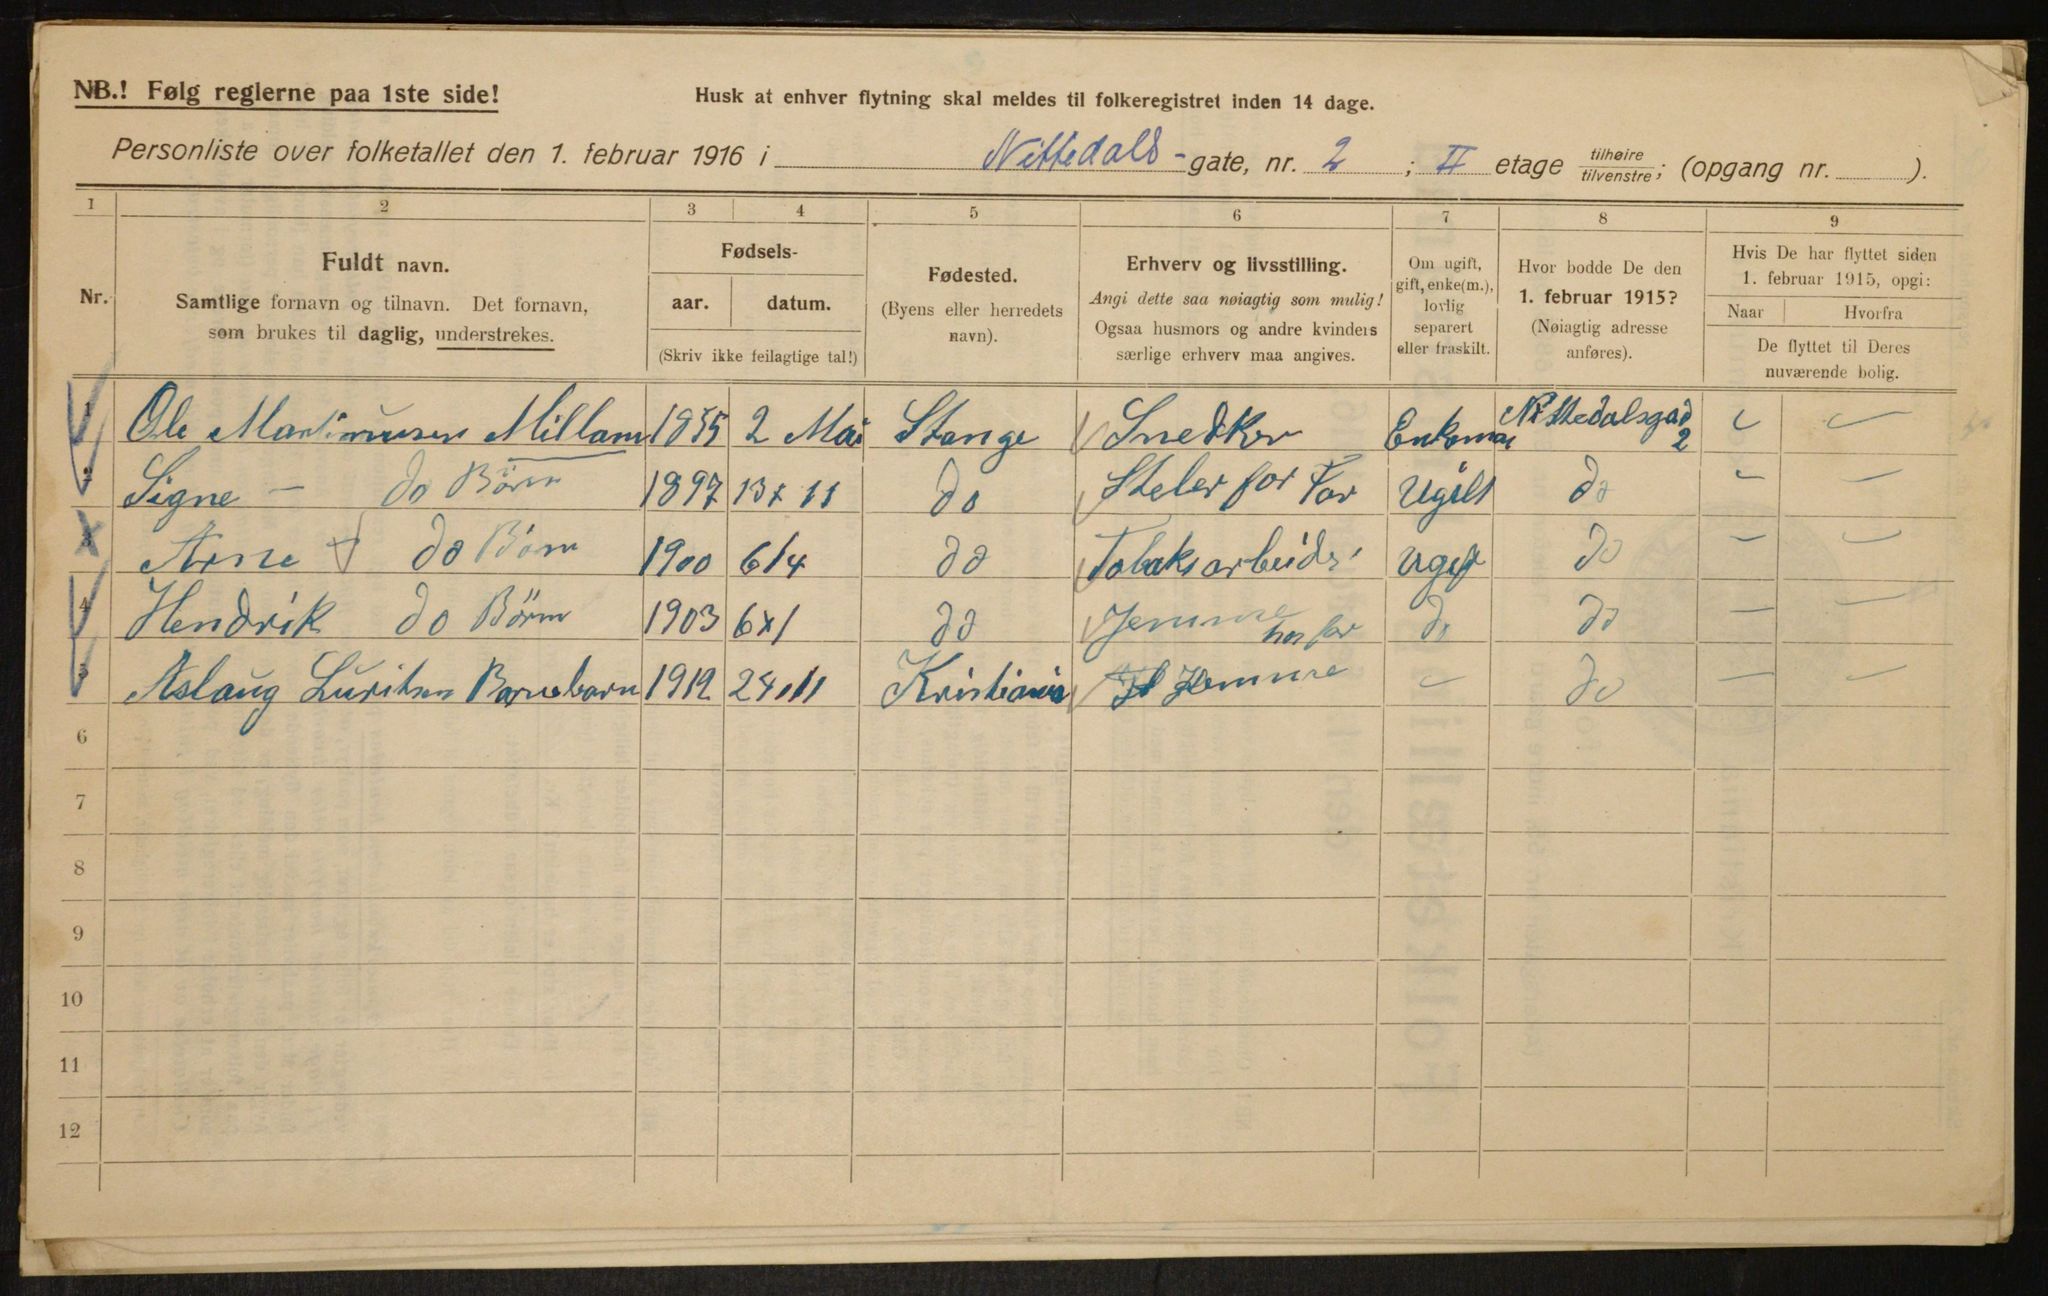 NB.! Følg reglerne paa 1ste side!
Husk at enhver flytning skal meldes til folkeregistret inden 14 dage.
Personliste over folketallet den 1. februar 1916 i Nittedals-gate, nr. 2; II etage tilhøire tilvenstre; (opgang nr. ).
1 2 3 4 5 6 7 8 9
Nr.
Fuldt navn.
Samtlige fornavn og tilnavn. Det fornavn,
som brukes til daglig, understrekes.
Fødsels-
aar. datum.
(Skriv ikke feilagtige tal!)
Fødested.
(Byens eller herredets
navn).
Erhverv og livsstilling.
Angi dette saa nøiagtig som mulig!
Ogsaa husmors og andre kvinders
særlige erhverv maa angives.
Om ugift,
gift, enke(m.),
lovlig
separert
eller fraskilt.
Hvor bodde De den
1. februar 1915?
(Nøiagtig adresse
anføres).
Hvis De har flyttet siden
1. februar 1915, opgi:
Naar Hvorfra
De flyttet til Deres
nuværende bolig.
1 Ole Martinusen Millam 1855 2 Mai Stange Snedker Enkeman Nittedalsgad 2
2 Signe - do Børn 1897 13 x 11 do Steler for Far Ugift do
3 Arne do Børn 1900 6/4 do Tobaksarbeider Ugift do
4 Hendrik do Børn 1903 6 x 1 do Jemme hos far do do
5 Aslaug Luritsen Barnebarn 1912 24/11 Kristiania Hjemme do
6
7
8
9
10
11
12